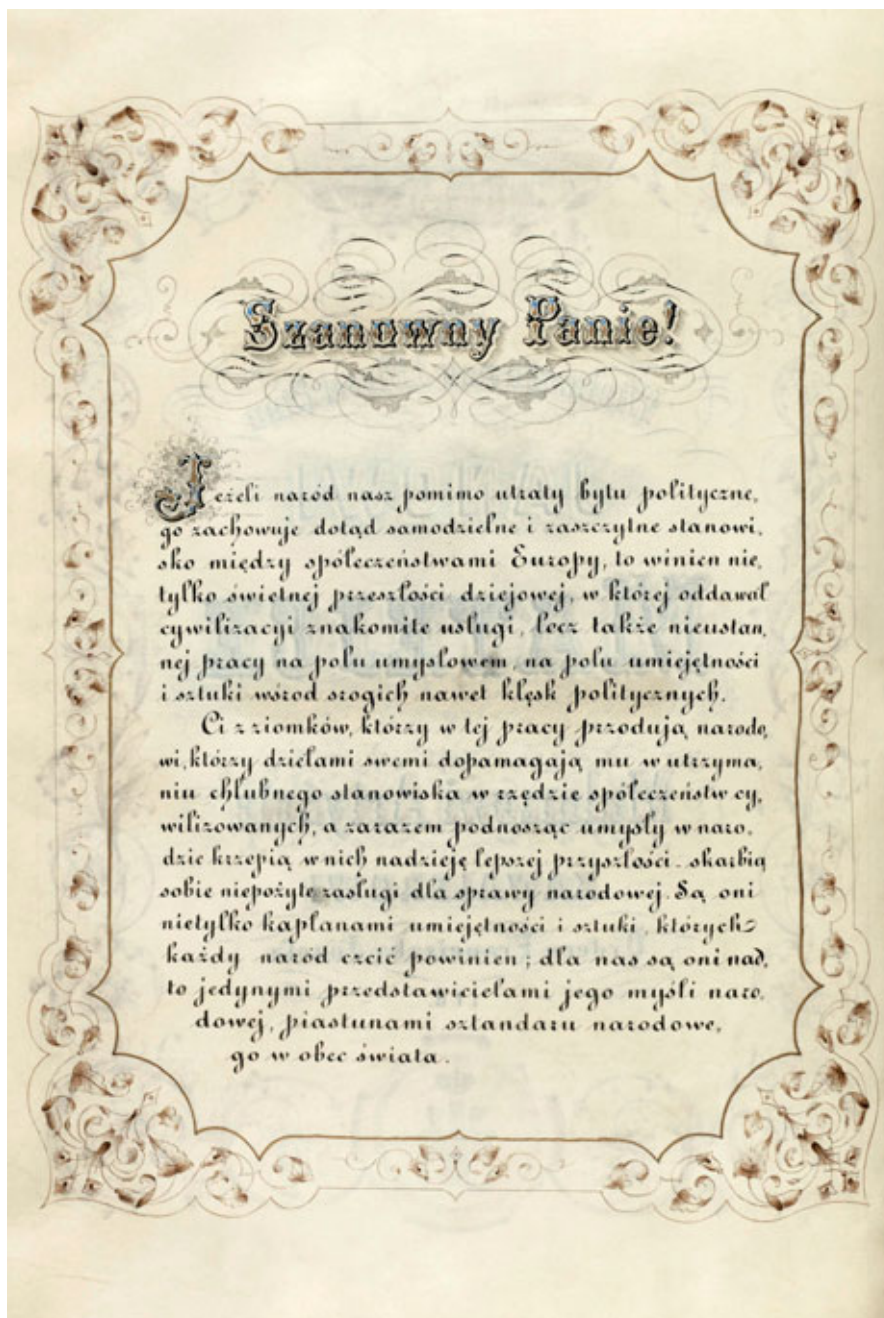 Szanowny Panie!
Jeżeli naród nasz pomimo utraty bytu polityczne,
go zachowuje dotąd samodzielne i zaszczytne stanowi,
sko między społeczeństwami Europy, to winien nie,
tylko świetnej przeszłości dziejowej, w której oddawał
cywilizacyi znakomite usługi, lecz także nieustan,
nej pracy na polu umysłowem, na polu umiejętności
i sztuki wśrod srogich nawet klęsk politycznych.
Ci z ziomków, którzy w tej pracy przodują narodo,
wi, którzy dziełami swemi dopamagają mu w utrzyma,
niu chlubnego stanowiska w rzędzie społeczeństw cy,
wilizowanych, a zarazem podnosząc umysły w naro,
dzie krzepią w nich nadzieję lepszej przyszłości - skarbią
sobie niepożyte zasługi dla sprawy narodowej. Są oni
nietylko kapłanami umiejętności i sztuki, których
każdy naród czcić powinien; dla nas są oni nad,
to jedynymi przedstawicielami jego myśli naro,
dowej, piastunami sztandaru narodowe,
go w obec świata.